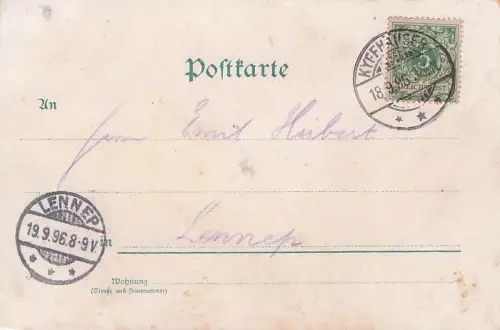 KYFFHAEUSER
18.9.96.
5
REICHSPOST
Postkarte
An
Herrn Emil Hübert
LENNEP
19.9.96.8-9V
in Lennep
Wohnung
(Straße und Hausnummer)